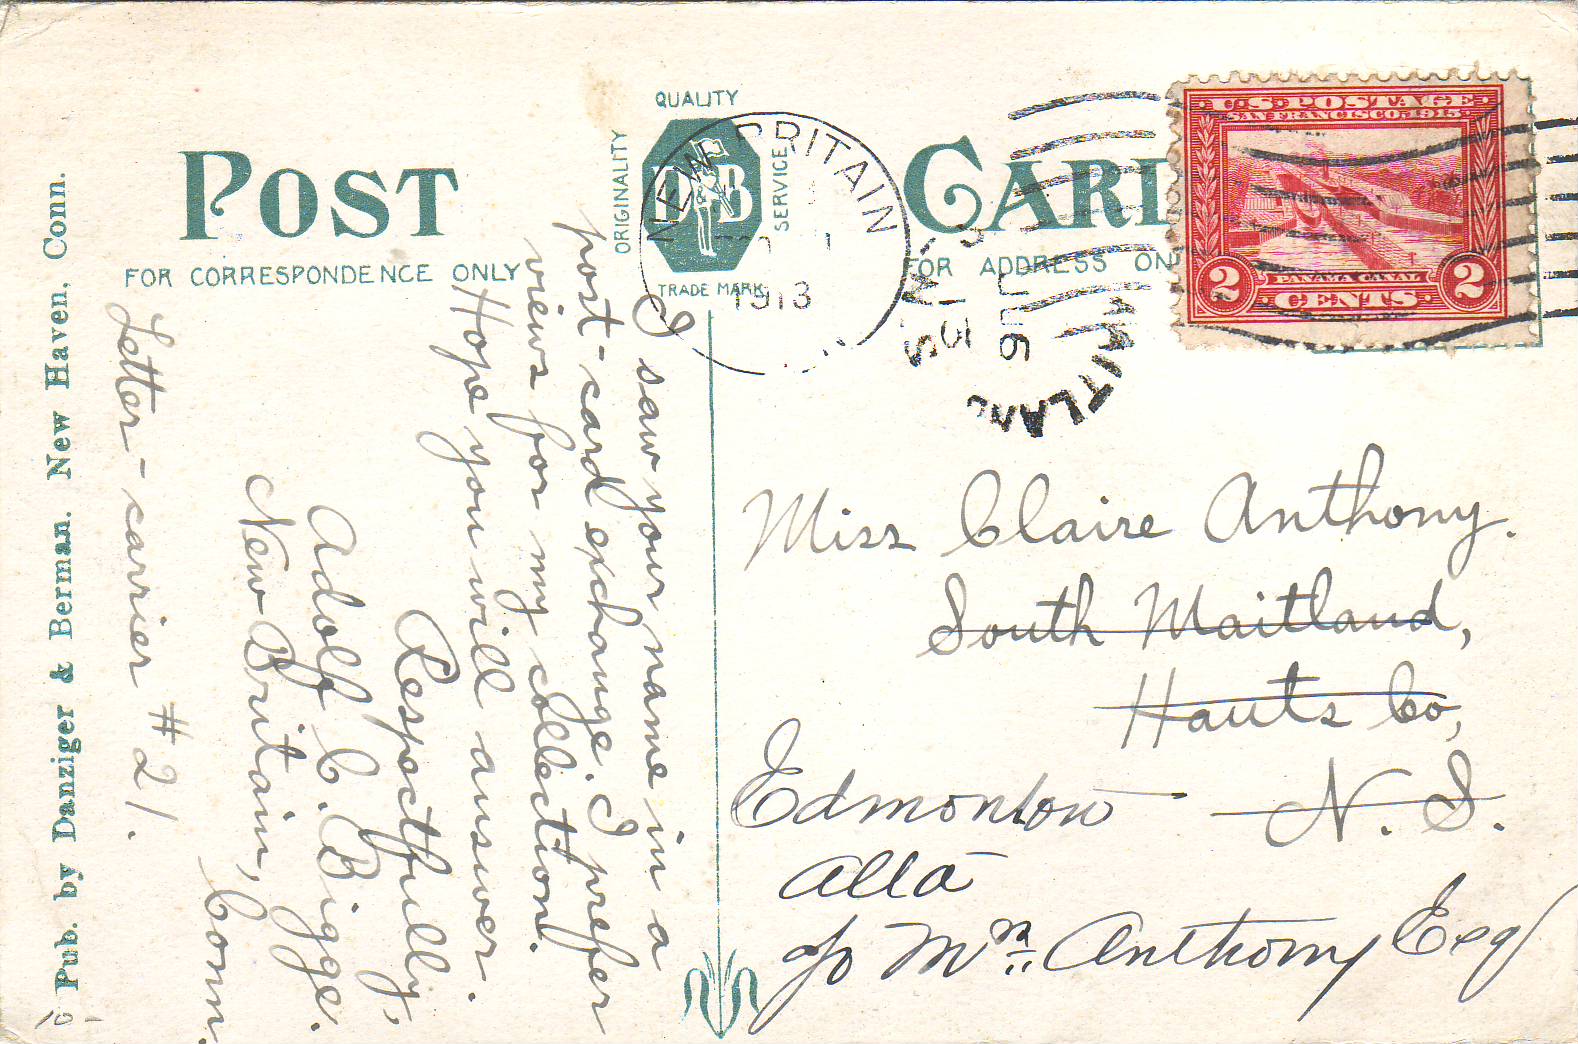 POST CARD
FOR CORRESPONDENCE ONLY
FOR ADDRESS ON
QUALITY
ORIGINALITY
SERVICE
D B
TRADE MARK
NEW BRITAIN
1913
MAITLAND
U.S. POSTAGE
SAN FRANCISCO, 1915
PANAMA CANAL
2 CENTS 2
I saw your name in a
post-card exchange. I prefer
views for my collection.
Hope you will answer.
Respectfully,
Adolf C. Bigge.
New Britain, Conn.
Letter-carrier #21.
Miss Claire Anthony.
South Maitland,
Hants Co,
N. S.
Edmonton
Alta
c/o Mr. Anthony Esq
Pub. by Danziger & Berman. New Haven, Conn.